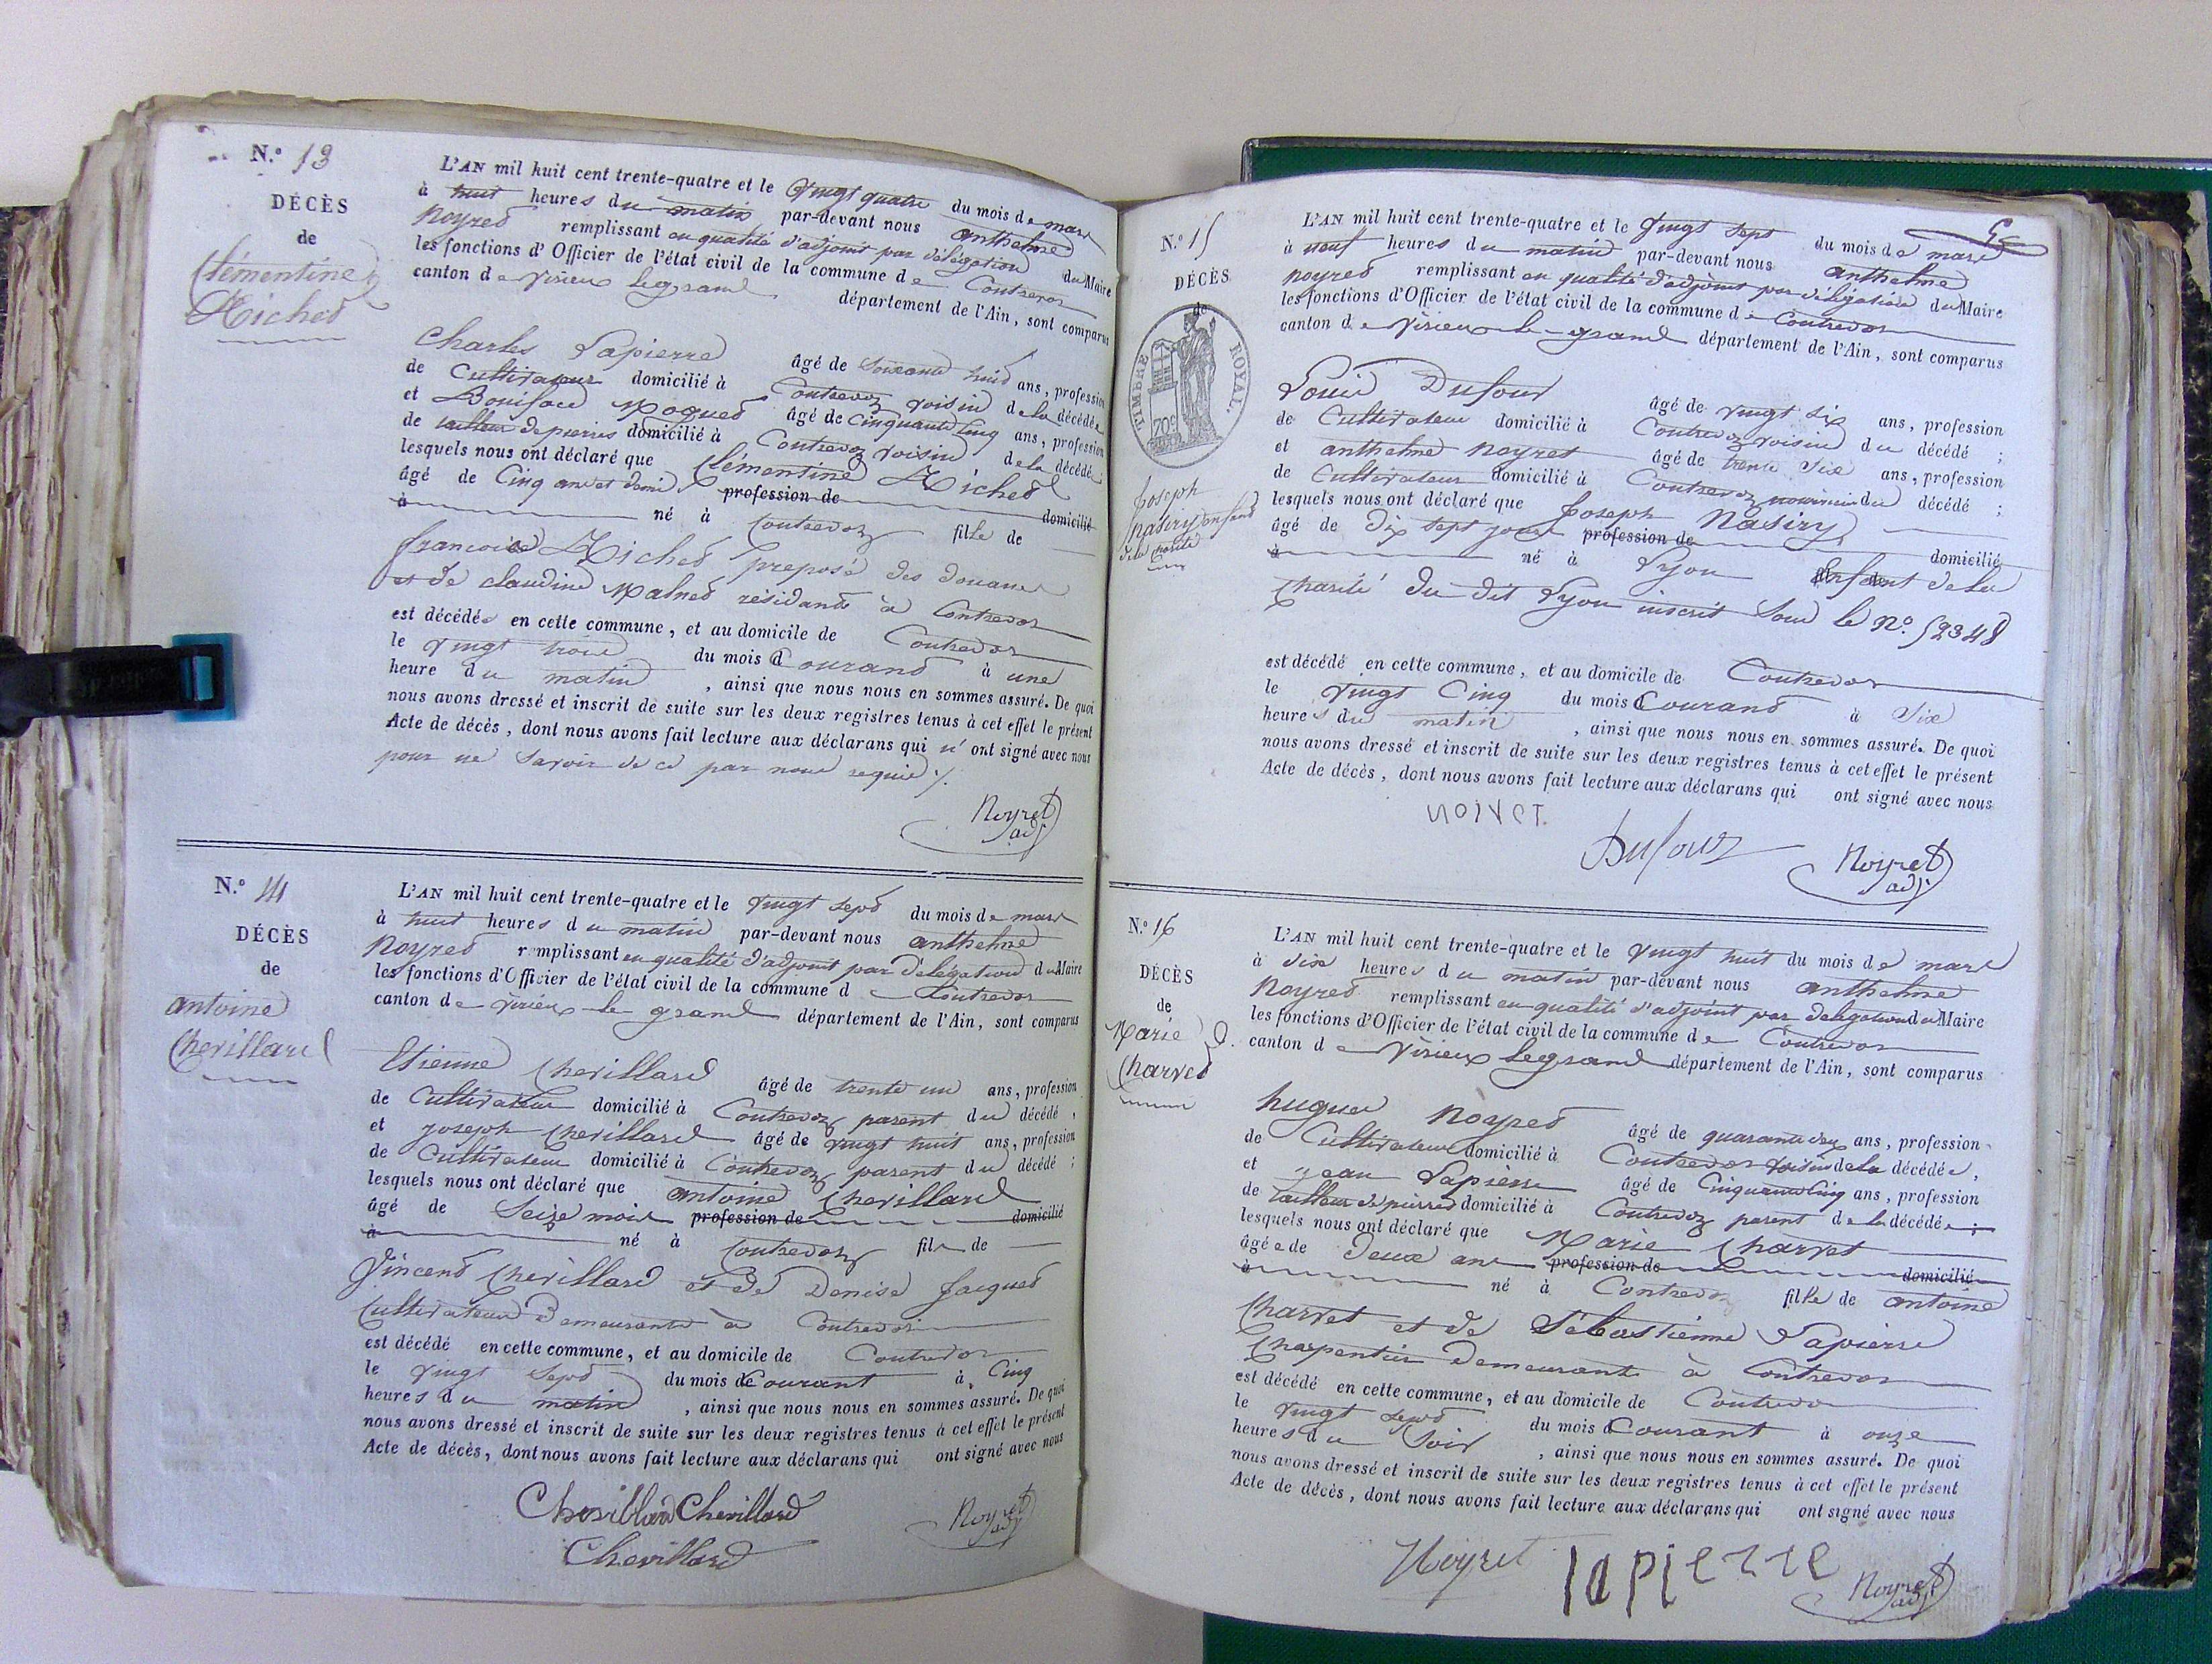 N.º 13
DÉCÈS
de
Clémentine
Miched
L'AN mil huit cent trente-quatre et le vingt quatre du mois de mars
à huit heures du matin par-devant nous anthelme
Noyred remplissant en qualité d'adjoint par délégation du Maire
les fonctions d'Officier de l'état civil de la commune de Contrevoz
canton de virieux legrand département de l'Ain, sont comparus
Charles Lapierre âgé de Soixante huit ans, profession
de Cultivateur domicilié à Contrevoz voisin de la décédée
et Boniface Moqued âgé de Cinquante Cinq ans, profession
de tailleur de pierres domicilié à Contrevoz voisin de la décédée;
lesquels nous ont déclaré que Clémentine Miched
âgé de Cinq ans et demi profession de domicilié
à né à Contrevoz fille de
francoise Miched preposé des douanes
et de claudine Malned résidants à Contrevoz
est décédée en cette commune, et au domicile de Contrevoz
le vingt trois du mois Courand à une
heure du matin, ainsi que nous nous en sommes assuré. De quoi
nous avons dressé et inscrit de suite sur les deux registres tenus à cet effet le présent
Acte de décès, dont nous avons fait lecture aux déclarans qui n'ont signé avec nous
pour ne Savoir de ce par nous requis ./.
Noyret
adj
N.º 14
DÉCÈS
de
antoine
Chevillard
L'AN mil huit cent trente-quatre et le vingt sept du mois de mars
à huit heures du matin par-devant nous anthelme
Noyred remplissant en qualité d'adjoint par délégation du Maire
les fonctions d'Officier de l'état civil de la commune de Contrevoz
canton de virieux le grand département de l'Ain, sont comparus
Etienne Chevillard âgé de trente un ans, profession
de Cultivateur domicilié à Contrevoz parent du décédé,
et joseph Chevillard âgé de vingt huit ans, profession
de Cultivateur domicilié à Contrevoz parent du décédé;
lesquels nous ont déclaré que antoine Chevillard
âgé de Seize mois profession de domicilié
à né à Contrevoz fils de
Vincend Chevillard et de Denise Jaqued
Cultivateurs Demeurants à Contrevoz
est décédé en cette commune, et au domicile de Contrevoz
le vingt Sept du mois Courant à Cinq
heures du matin, ainsi que nous nous en sommes assuré. De quoi
nous avons dressé et inscrit de suite sur les deux registres tenus à cet effet le présent
Acte de décès, dont nous avons fait lecture aux déclarans qui ont signé avec nous
Chevillard Chevillard
Chevillard
Noyret
adj
N.º 15
DÉCÈS
de
TIMBRE ROYAL.
70c
Joseph
Nasiry enfand
de la charité
L'AN mil huit cent trente-quatre et le vingt sept du mois de mars
à neuf heures du matin par-devant nous anthelme
noyred remplissant en qualité d'adjoint par délégation du Maire
les fonctions d'Officier de l'état civil de la commune de Contrevoz
canton de virieux le grand département de l'Ain, sont comparus
Louis Dufour âgé de vingt six ans, profession
de Cultivateur domicilié à Contrevoz voisin du décédé;
et anthelme noyret âgé de trente Six ans, profession
de Cultivateur domicilié à Contrevoz nourricier du décédé;
lesquels nous ont déclaré que Joseph Nasiry
âgé de dix sept jours profession de domicilié
à né à Lyon Enfant de la
Charité du dit Lyon inscrit Sous le Nº. 52348
est décédé en cette commune, et au domicile de Contrevoz
le vingt Cinq du mois Courand à Six
heures du matin, ainsi que nous nous en sommes assuré. De quoi
nous avons dressé et inscrit de suite sur les deux registres tenus à cet effet le présent
Acte de décès, dont nous avons fait lecture aux déclarans qui ont signé avec nous
Dufour
Noyret
adj
N.º 16
DÉCÈS
de
Marie
Charved
L'AN mil huit cent trente-quatre et le vingt huit du mois de mars
à dix heures du matin par-devant nous anthelme
Noyred remplissant en qualité d'adjoint par délégation du Maire
les fonctions d'Officier de l'état civil de la commune de Contrevoz
canton de virieux legrand département de l'Ain, sont comparus
hugues Noyred âgé de quarante deux ans, profession
de Cultivateur domicilié à Contrevoz voisin de la décédée,
et jean Lapierre âgé de Cinquante Cinq ans, profession
de tailleur de pierres domicilié à Contrevoz parent de la décédée;
lesquels nous ont déclaré que Marie Charvet
âgée de deux ans profession de domicilié
à né à Contrevoz fille de antoine
Charvet et de Sébastienne Lapierre
Charpentier demeurants à Contrevoz
est décédé en cette commune, et au domicile de Contrevoz
le vingt sept du mois Courant à onze
heures du Soir, ainsi que nous nous en sommes assuré. De quoi
nous avons dressé et inscrit de suite sur les deux registres tenus à cet effet le présent
Acte de décès, dont nous avons fait lecture aux déclarans qui ont signé avec nous
Noyret lapierre
Noyret
adj